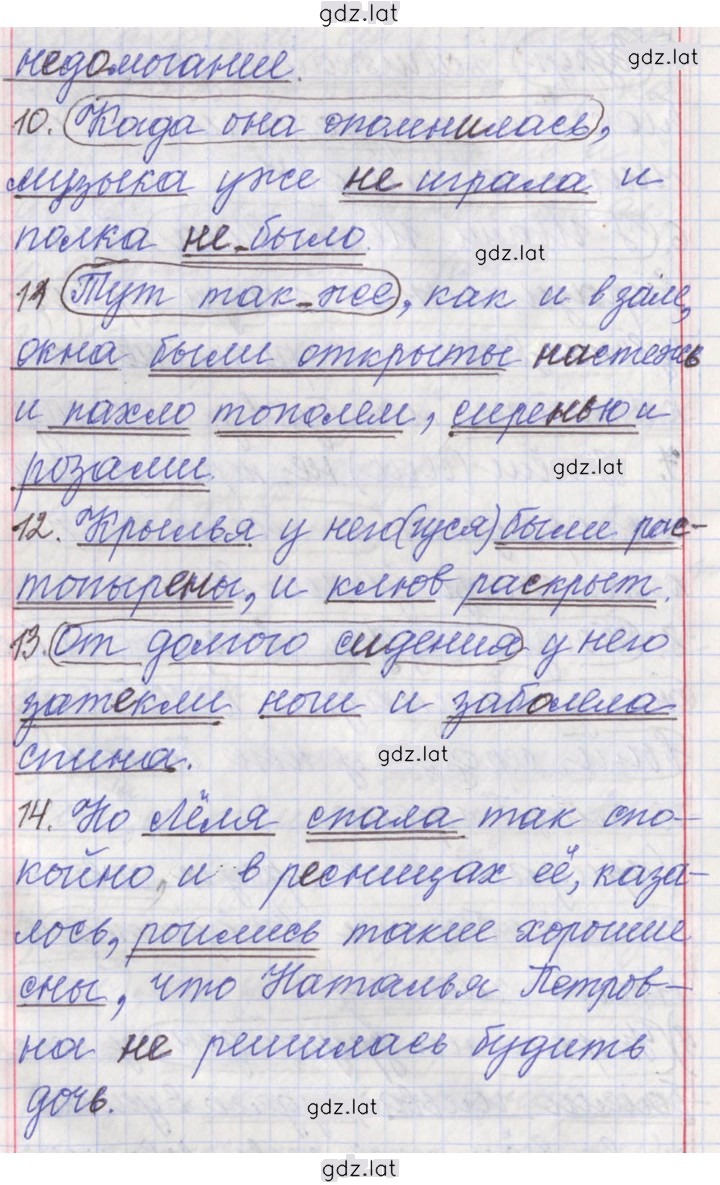 gdz.lat
недомогание.
gdz.lat
10. Когда она опомнилась,
музыка уже не играла и
полка не было.
gdz.lat
11 Тут так же, как и в зале,
окна были открыты настежь
и пахло тополем, сиренью и
розами.
gdz.lat
12. Крылья у него(гуся) были рас-
топырены, и клюв раскрыт.
13. От долгого сидения у него
затекли ноги и заболела
спина.
gdz.lat
14. Но Лёля спала так спо-
койно, и в ресницах её, каза-
лось, роились такие хорошие
сны, что Наталья Петров-
на не решилась будить
дочь.
gdz.lat
gdz.lat